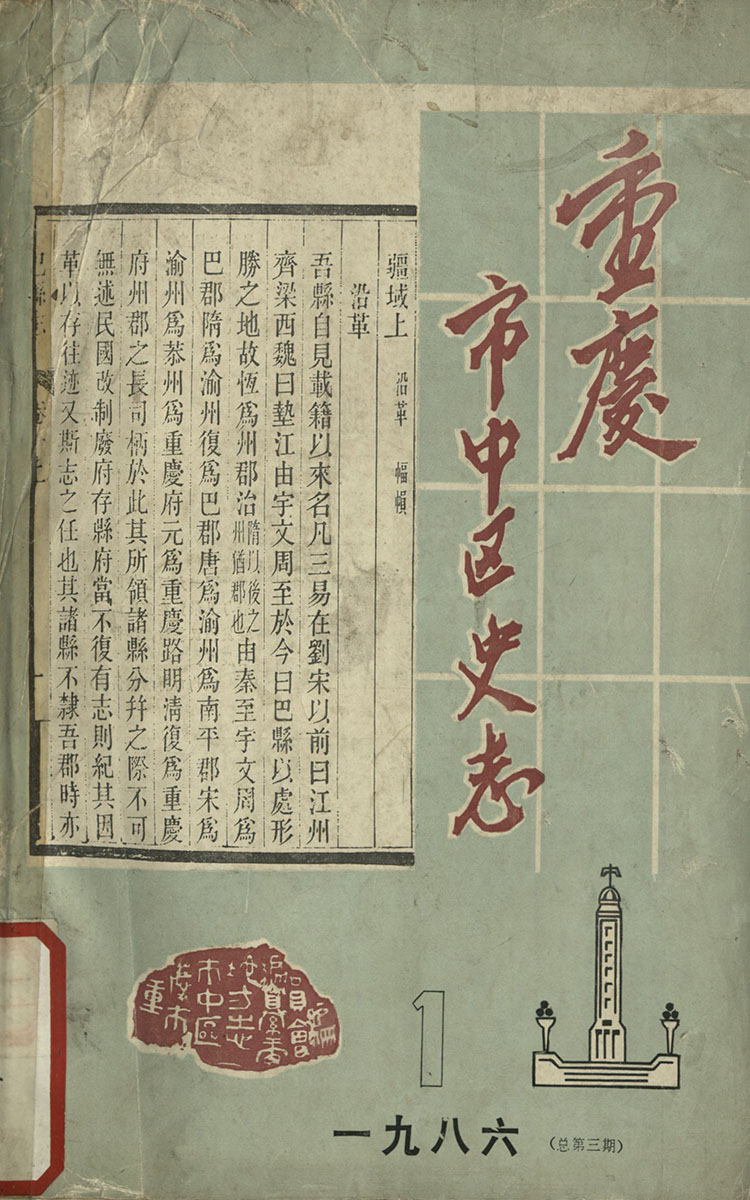 重慶
市中区史志
疆域上 沿革 幅幀
沿革
吾縣自見載籍以來名凡三易在劉宋以前曰江州
齊梁西魏曰墊江由宇文周至於今曰巴縣以處形
勝之地故恆爲州郡治隋以後之州猶郡也由秦至宇文周爲
巴郡隋爲渝州復爲巴郡唐爲渝州爲南平郡宋爲
渝州爲恭州爲重慶府元爲重慶路明清復爲重慶
府州郡之長司柄於此其所領諸縣分幷之際不可
無述民國改制廢府存縣府當不復有志則紀其因
革以存往迹又斯志之任也其諸縣不隸吾郡時亦
重慶市
市中區
地方志
編纂委
員會
1
一九八六
(总第三期)